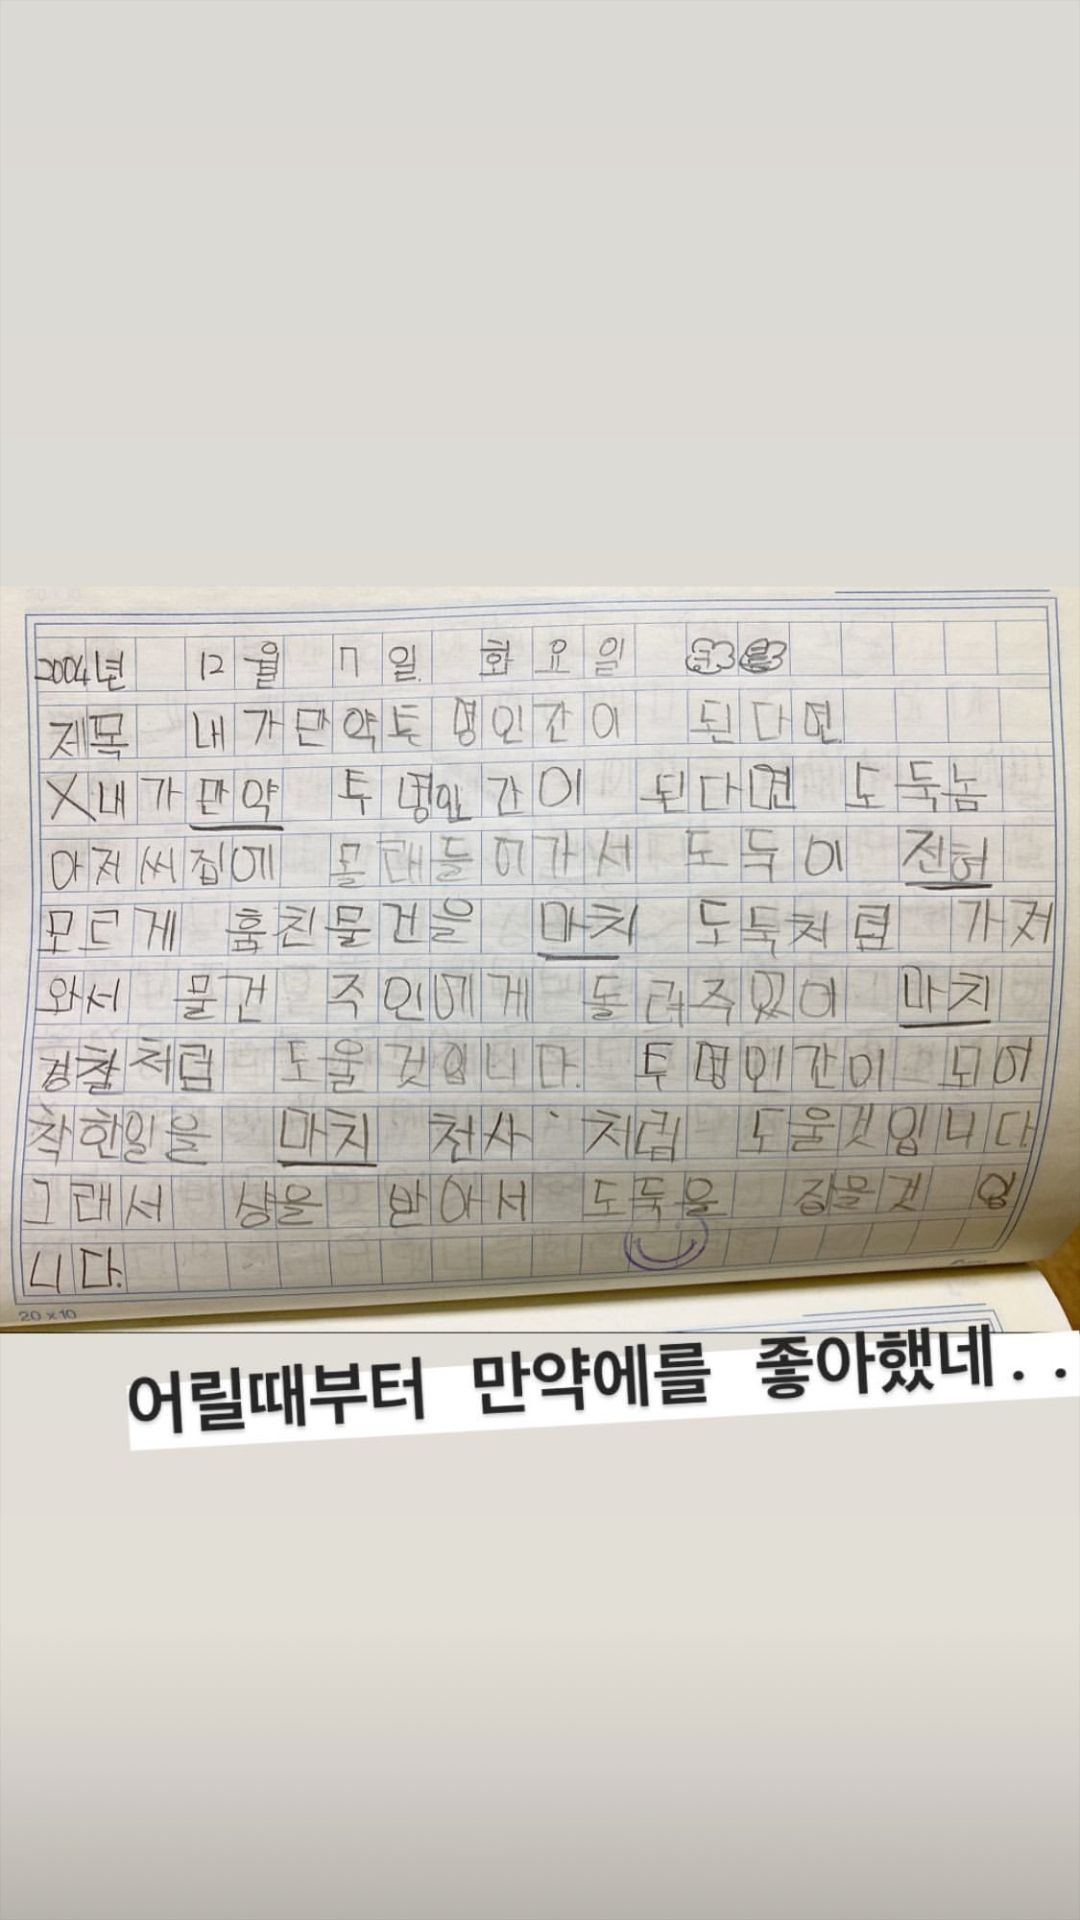 2004년 12월 7일 화요일
제목 내가만약투명인간이 된다면
X내가만약 투명인간이 된다면 도둑놈
아저씨집에 몰래들어가서 도둑이 전혀
모르게 훔친물건을 마치 도둑처럼 가저
와서 물건 주인에게 돌려주 이 마치
경찰처럼 도울것입니다. 투명인간이 되어
착한일을 마치 천사 처럼 도울것입니다
그래서 상을 받아서 도둑을 잡을것 입
니다.
20×10
어릴때부터 만약에를 좋아했네..